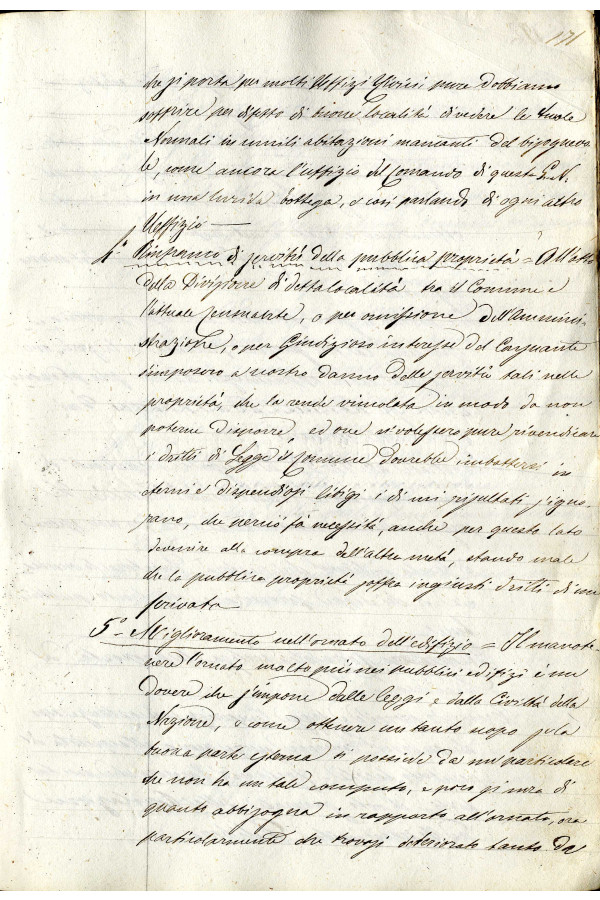 171
che si porta per molti Uffizi Civici pure dobbiamo
soffrire per difetto di buone località di vedere le Scuole
Normali in umili abitazioni mancanti del bisognevo-
le, come ancora l'uffizio del Comando di questa G. N.
in una lurida bottega, e così parlando di ogni altro
Uffizio —
4° Rinfranco di servitù della pubblica proprietà = All'atto
della Divisione di detta località tra il Comune e
l'attuale, o per omissione dell'Ammini-
strazione, o per Giudizioso interesse del
s'imposero a nostro danno delle servitù tali nelle
proprietà, che la rende vincolata in modo da non
poterne disporre, ed ove si volessero pure rivendicare
i dritti di Legge il Comune dovrebbe imbattersi in
eterni e dispendiosi litigi i di cui risultati s'igno-
rano, che perciò fà necessità, anche per questo lato
divenire alla compra dell'altra metà, stando male
che la pubblica proprietà soffra ingiusti dritti di un
privato
5° Miglioramento nell'ornato dell'edifizio = Il mante-
nere l'ornato molto più nei pubblici edifizi è un
dovere che s'impone dalle Leggi e dalla Civiltà della
Nazione, e come ottenere un tanto uopo se la
buona parte esterna si possiede da un particolare
che non ha un tale compito, e poco si cura di
quanto abbisogna in rapporto all'ornato, ora
particolarmente che trovasi deteriorato tanto da